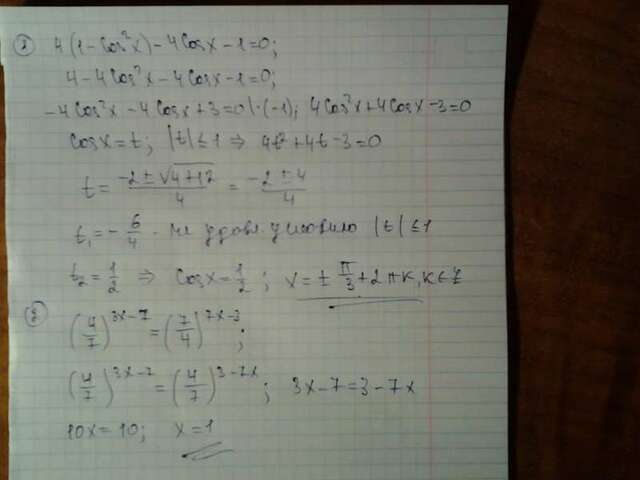 ① 4(1-cos²x)-4cosx-1=0;
4-4cos²x-4cosx-1=0;
-4cos²x-4cosx+3=0|·(-1); 4cos²x+4cosx-3=0
cosx=t; |t|≤1 ⇒ 4t²+4t-3=0
t= (-2±√(4+12))/4 = (-2±4)/4
t₁=-6/4 - не удовл. условию |t|≤1
t₂=1/2 ⇒ cosx=1/2; x=±π/3+2πk, k∈Z
② (4/7)^(3x-7)=(7/4)^(7x-3);
(4/7)^(3x-7)=(4/7)^(3-7x); 3x-7=3-7x
10x=10; x=1